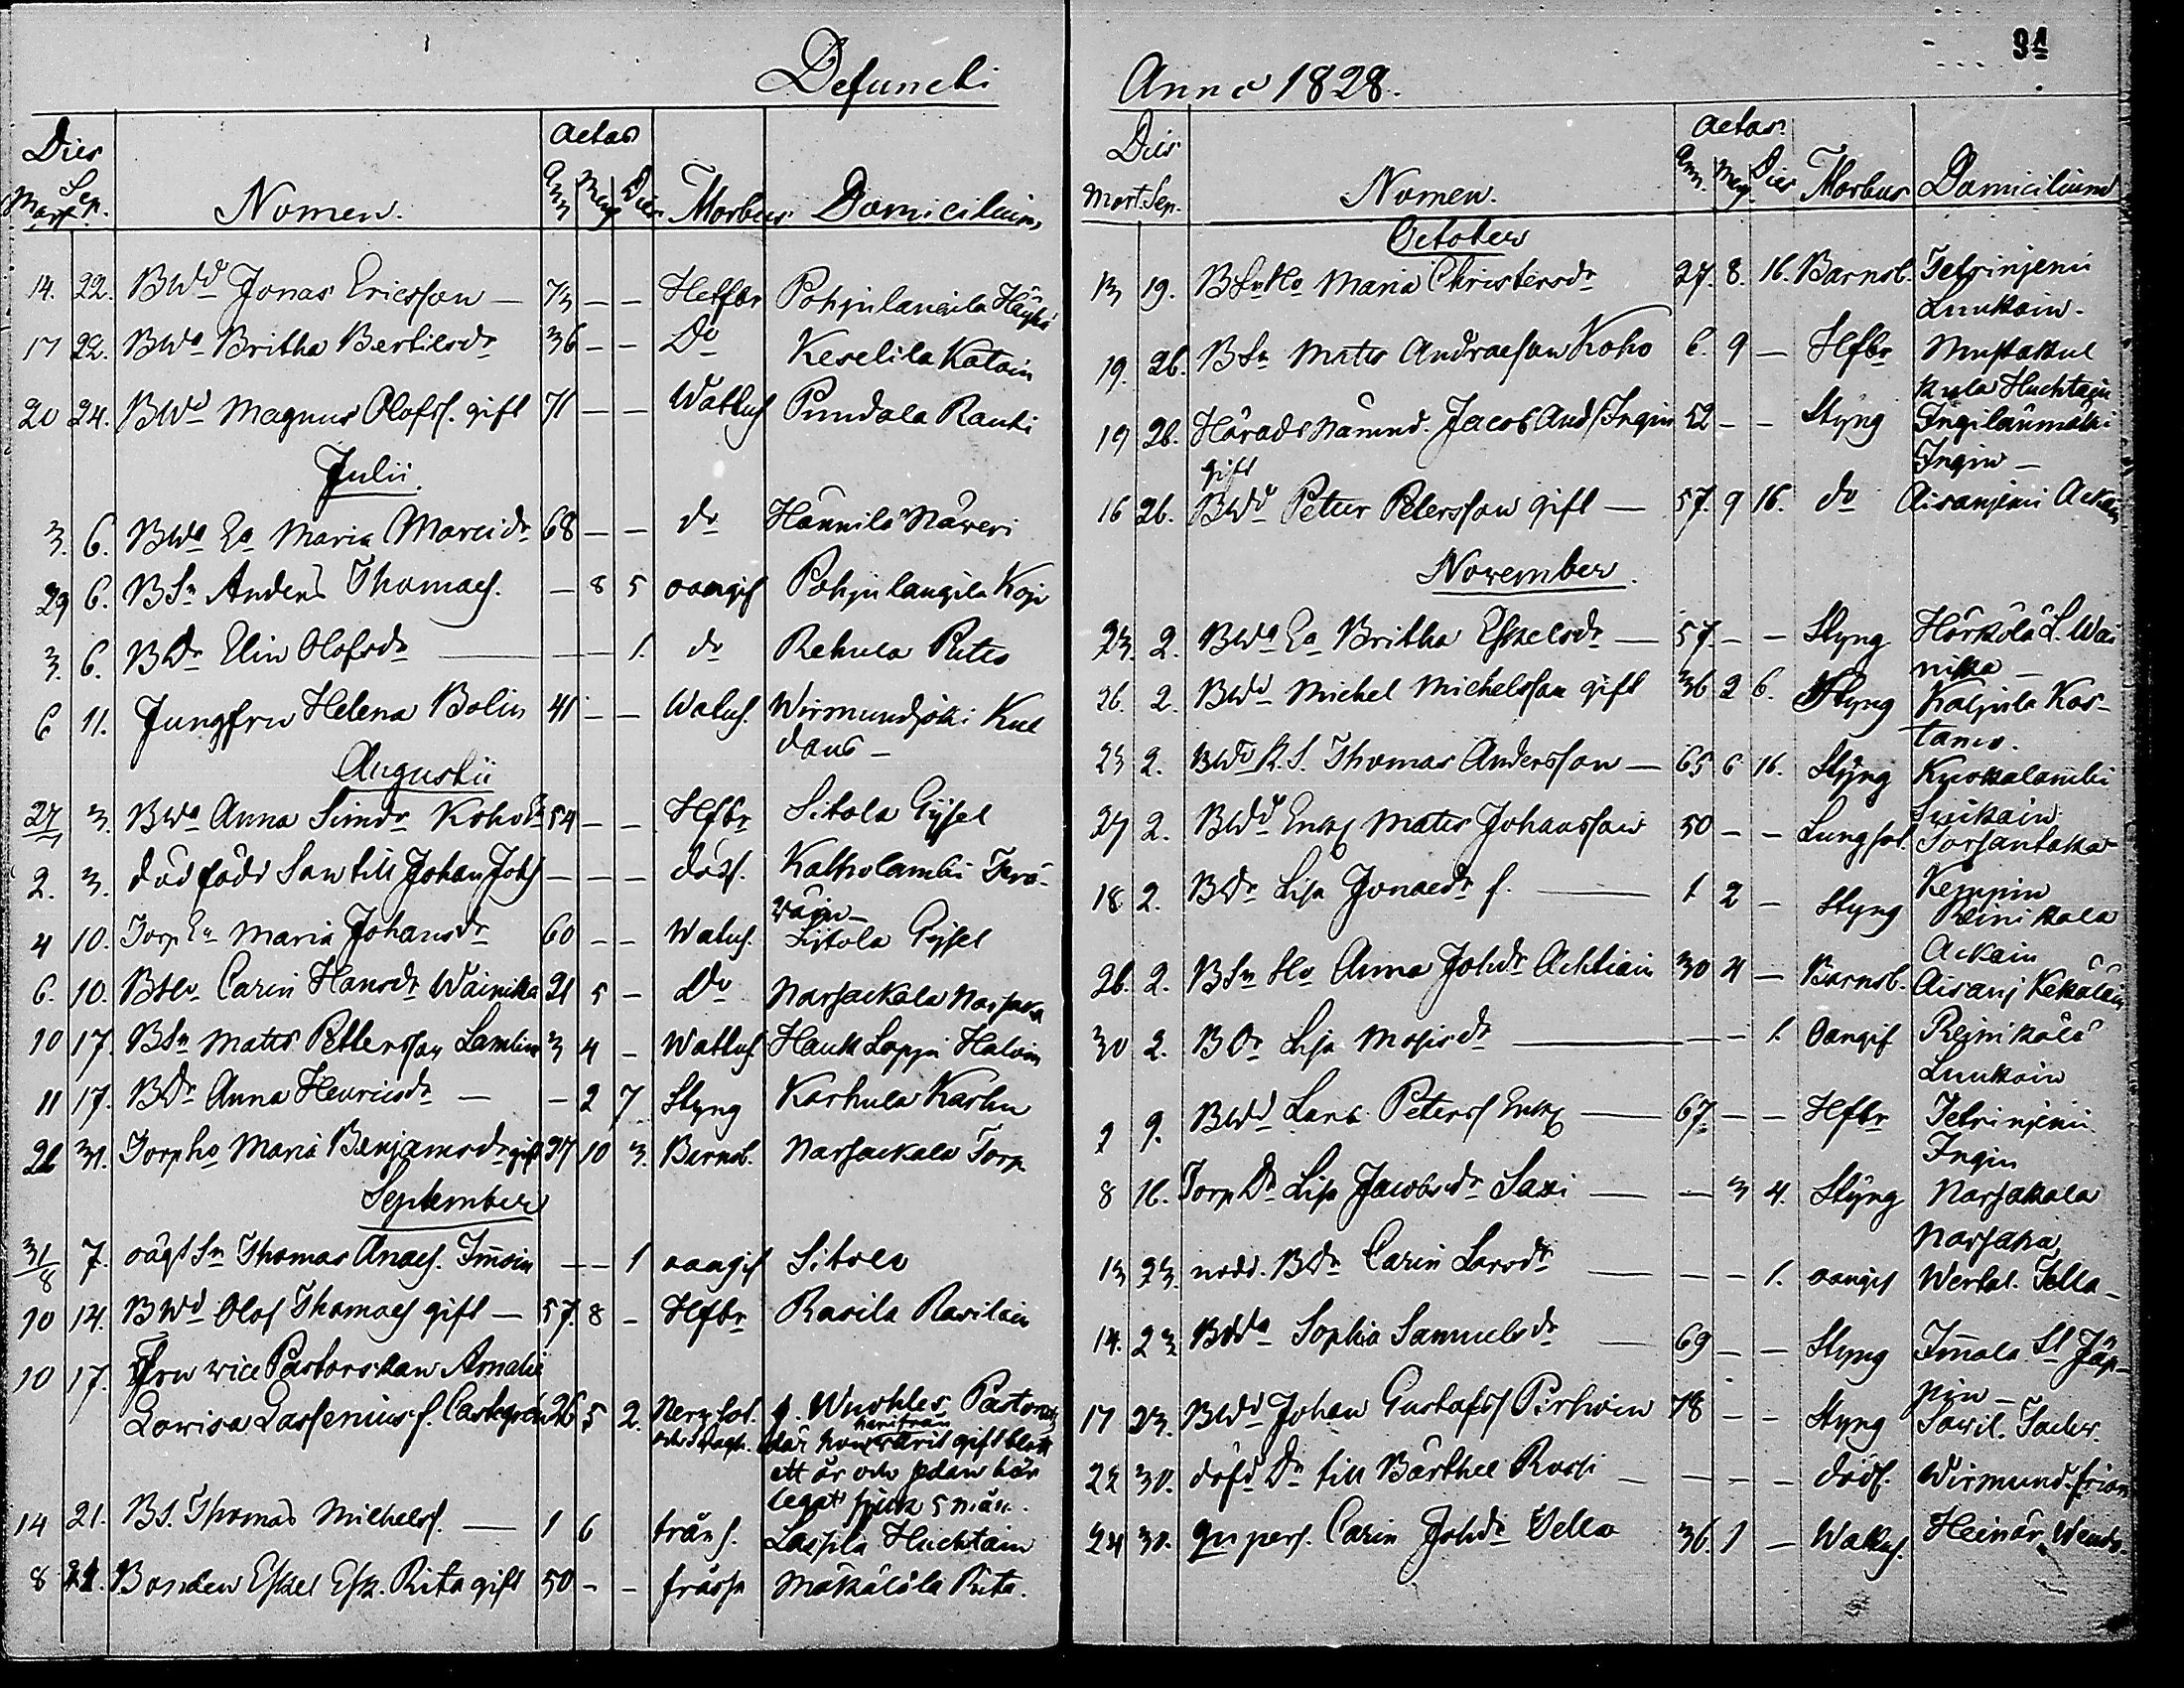 94
Defuncti
Dies
Mort. Sep.
Nomen.
Aetas
Ann Mens Dies
Morbus
Domicilium
14. 22. BWd Jonas Ericsson — 73 — — Hetfbr Pohjilangila Häyhä
17 22. BWa Britha Bertilsdr 36 — — Do Keselila Katain
20 24. BWd Magnus Olofss. gift 71 — — Wattus Pundala Rauti
Julii.
3. 6. BWa Ea Maria Marcidr 68 — — do Hännilä Näreri
29 6. BSn Anders Thomaes. — 8 5 oangif Pohjilangila Kojo
3. 6. BDr Elin Olofsdr — 1. do Rehula Rites
6 11. Jungfru Helena Bolin 41 — — Watus. Wirmundjoki Kul
dans —
Augustii
27/7 3. BWa Anna Simdr Koho Ea 54 — — Hfbr Sitola Gyssel
2. 3. dödfödd Son till Johan Johs — — — död. Kalholambi Terä-
wäin —
4 10. Torp Ea Maria Johansdr 60 — — Watus. Sitola Gyssel
6. 10. BHo Carin Hansdr Wainikka 21 5 — Do Narsackala Narsaka
10 17. BSn Matts Pettersson Lamlin 3 4 — Wattus. Hauk Lappi Haloin
11 17. BDr Anna Henricsdr — — 2 7 Styng Karhula Karhu
26 31. Torpho Maria Benjamsdr gift 27 10 3. Barnsb. Narsackala Torp
September
31/8 7. oägt Sn Thomas Anaes. Im̄oin — — 1 oangif Sitola
10 14. BWd Olof Thomaes gift — 57. 8 — Hfbr Rasila Rasilain
10 17. Fru vice Pastorskan Amalie
Lovisa Lassenius f. Castegren 26 5 2. Nerv sot. g. Wuohles Pastorat
härifrån
där hon varit gift blott
ett år och sedan här
legat sjuk 5 mån.
14 21. BS. Thomas Michelss. — 1 6 tråns. Laspila Huchtain
8 21. Bonden Eskel Esk. Rita gift 50 — — frässa Mäkälölä Rita.
Anno 1828.
Dies
Mort. Sep.
Nomen.
Aetas
Ann. Mens. Dies
Morbus
Domicilium
October
13 19. BSnHo Maria Christersdr 27. 8. 16. Barnsb. Tetrinjemi
Luukain.
19. 26. BSn Matts Andraesson Koho 6. 9 — Hfbr Mustakul
kula Huchtain
19 26. Härads Nämnd. Jacob Ands Ingin 52 — — Styng Ingilänmäki
gift
Ingin —
16 26. BWd Petter Petersson gift — 57. 9 16. do Aisanjemi Ackain
November.
23. 2. BWa Ea Britha Eskelsdr — 57. — — Styng Hörkölä L. Wai
nikka —
26. 2. BWd Michel Michelsson gift 36 2 6. Styng Kaljula Kos-
tamo.
23 2. BWd K. S. Thomas Andersson — 65 6 16. Styng Kuokkalambi
Suikain
27 2. BWd Enkl Matts Johansson 50 — — Lungsot. Torsantaka
Kemppin
18 2. BDr Lisa Jonaedr f. — 1 2 — Styng Reinikala
Ackain
26. 2. BSn Ho Anna Johdr Achtiain 30 4 — Barnsb. Aisanj Kekäläin
30 2. BDr Lisa Mosisdr — — 1. Oangif Reinikälä
Luukoin
2 9. BWd Lars Peterss Enkl — 67. — — Hfbr Tetrinjemi
Ingin
8 16. Torp Dr Lisa Jacobsdr Saxi — — 3 4. Styng Narsakala
Narsaka
13 23. nödd. BDr Carin Larsdr — — — 1. oangif Werlal. Tella-
14. 23 BWa Sophia Samuelsdr — 69 — — Styng Im̄ola St Jäp-
pin —
17 23. BWd Johan Gustafss Pirhoin 78 — — Styng Sawil.
22 30. döfd Dr till Bärthel Rossi — — — — död. Wirmund.
24 30. Inpers. Carin Johdr Vella 36. 1 — Wattus. Heinär.